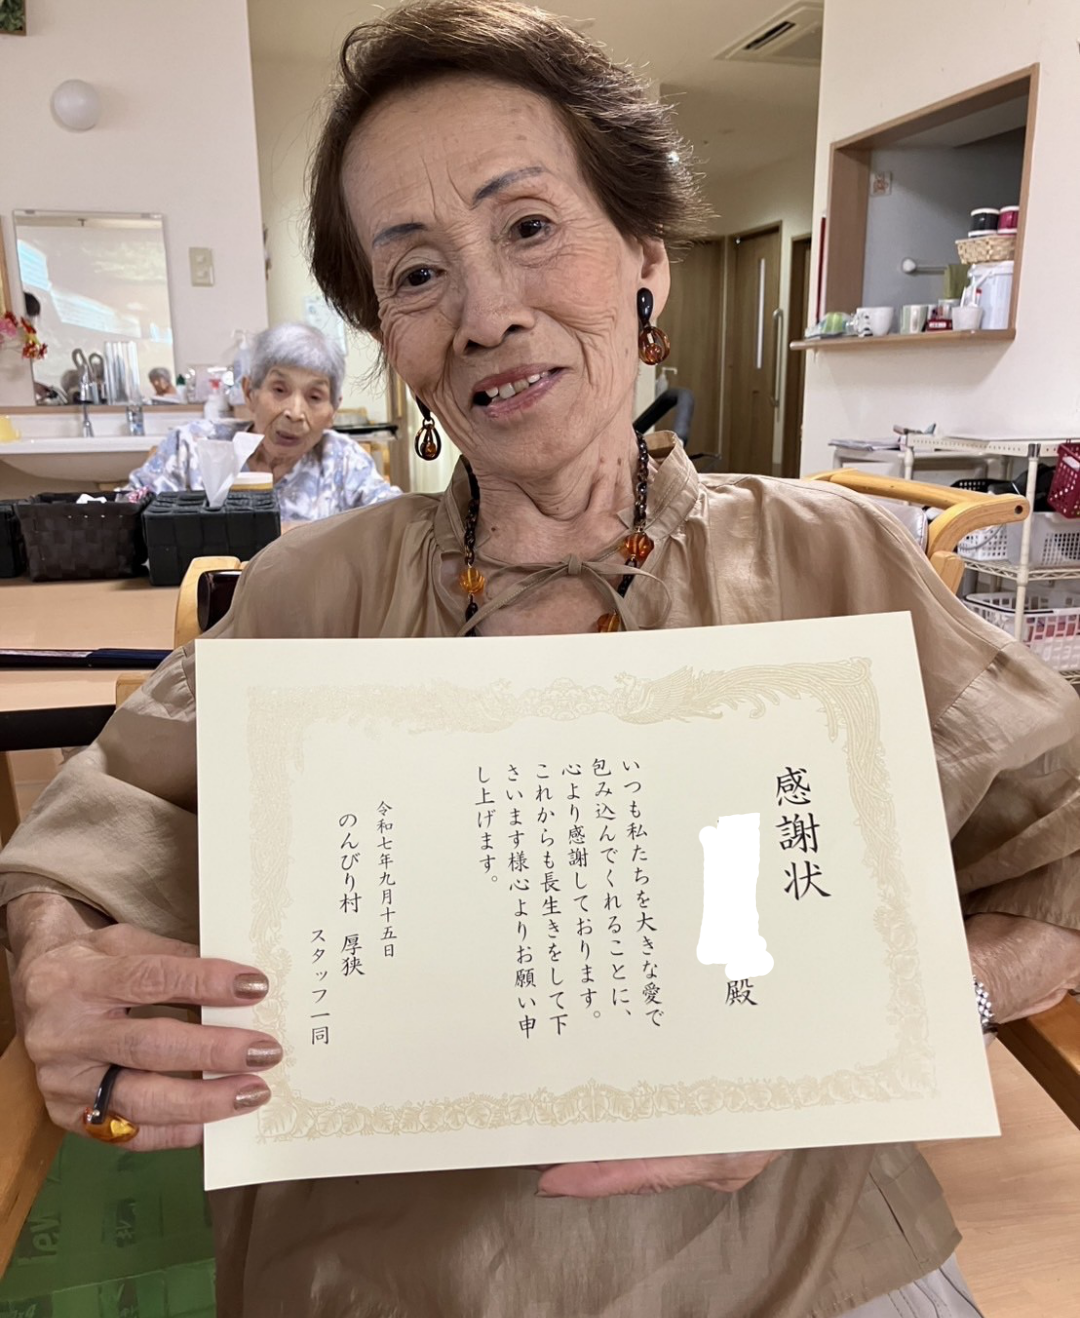 感謝状
殿
いつも私たちを大きな愛で
包み込んでくれることに、
心より感謝しております。
これからも長生きをして下
さいます様心よりお願い申
し上げます。
令和七年九月十五日
のんびり村　厚狭
スタッフ一同